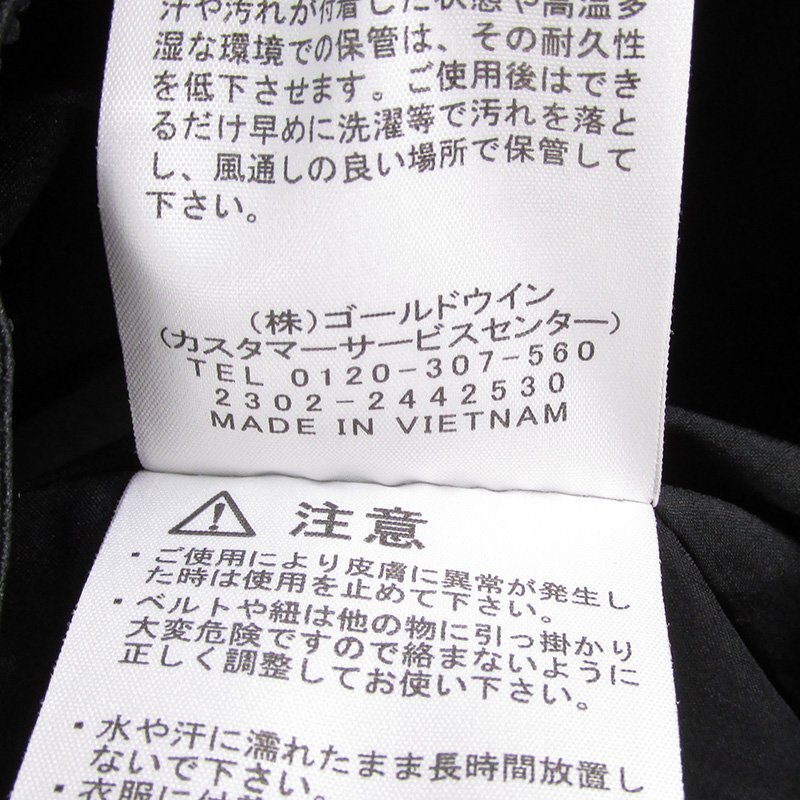 汗や汚れが付着した状態や高温多
湿な環境での保管は、その耐久性
を低下させます。ご使用後はでき
るだけ早めに洗濯等で汚れを落と
し、風通しの良い場所で保管して
下さい。
(株)ゴールドウイン
(カスタマーサービスセンター)
TEL 0120-307-560
2302-2442530
MADE IN VIETNAM
注意
・ご使用により皮膚に異常が発生し
た時は使用を止めて下さい。
・ベルトや紐は他の物に引っ掛かり
大変危険ですので絡まないように
正しく調整してお使い下さい。
・水や汗に濡れたまま長時間放置し
ないで下さい。
・衣服に付